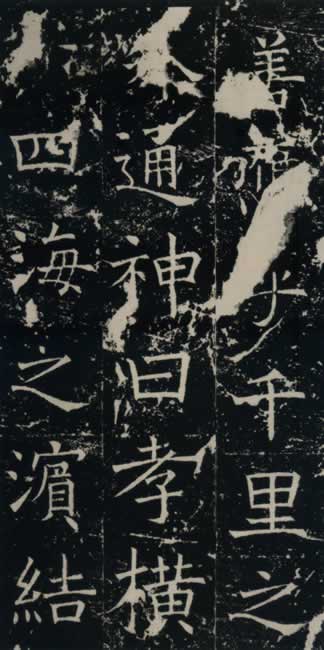 善千里之
通神曰孝橫
四海之濱結